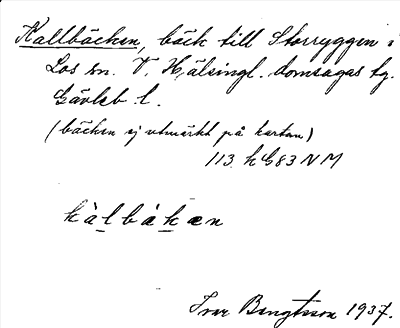 Kallbäcken, bäck till Storryggen i
Los sn. V. Hälsingl. domsagas tg.
Gävleb. l.
(bäcken ej utmärkt på kartan)
113. h G83 N M
kàlbàkæn
Ivar Bengtsson 1937.